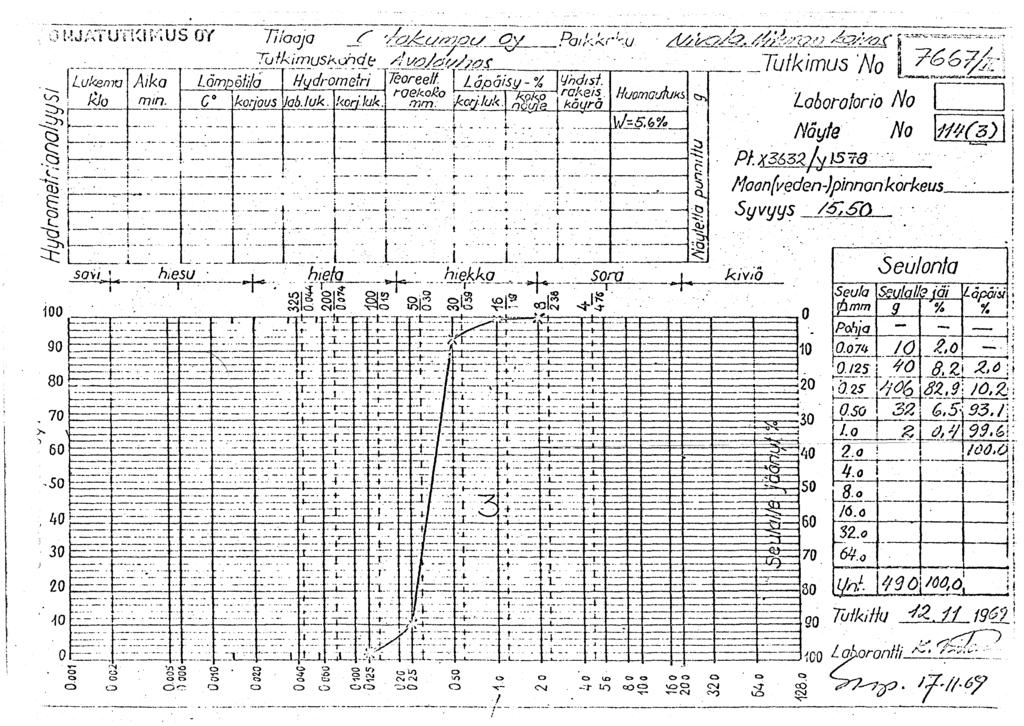 OHJATUTKIMUS OY
Tilaaja Oy Paikkak. Nivala
Tutkimuskohde Avolouhos
Tutkimus No 7667/
Lukema klo
Aika min.
Lämpötila C° korjaus
Hydrometri lab.luk. korj.luk.
Teoreett. raekoko mm.
Läpäisy-% korj.luk. koko näyte
Yhdist. rakeis. käyrä
Huomautuks
W=5,6%
Hydrometrianalyysi
Näytettä punnittu g
Laboratorio No
Näyte No 114(3)
Pt. x3632/y1578
Maan(veden-)pinnan korkeus
Syvyys 15,50
savi hiesu hieta hiekka sora kiviä
325 200 100 50 30 16 8 4
0.044 0.074 0.15 0.30 0.59 1.19 2.38 4.76
100 90 80 70 60 50 40 30 20 10 0
0 10 20 30 40 50 60 70 80 90 100
Seulalle jäänyt %
3
0.001 0.002 0.005 0.006 0.010 0.020 0.040 0.060 0.100 0.125 0.20 0.25 0.50 1.0 2.0 4.0 5.6 8.0 10.0 16.0 20.0 32.0 64.0 128.0
Seulonta
Seula mm Seulalle jäi g % Läpäisi %
Pohja — — —
0.074 10 2,0 —
0.125 40 8,2 2,0
0.25 406 82,9 10,2
0.50 32 6,5 93,1
1.0 2 0,4 99,6
2.0 100,0
4.0
8.0
16.0
32.0
64.0
Yht. 490 100,0
Tutkittu 12.11 1969
Laborantti
17.11.69